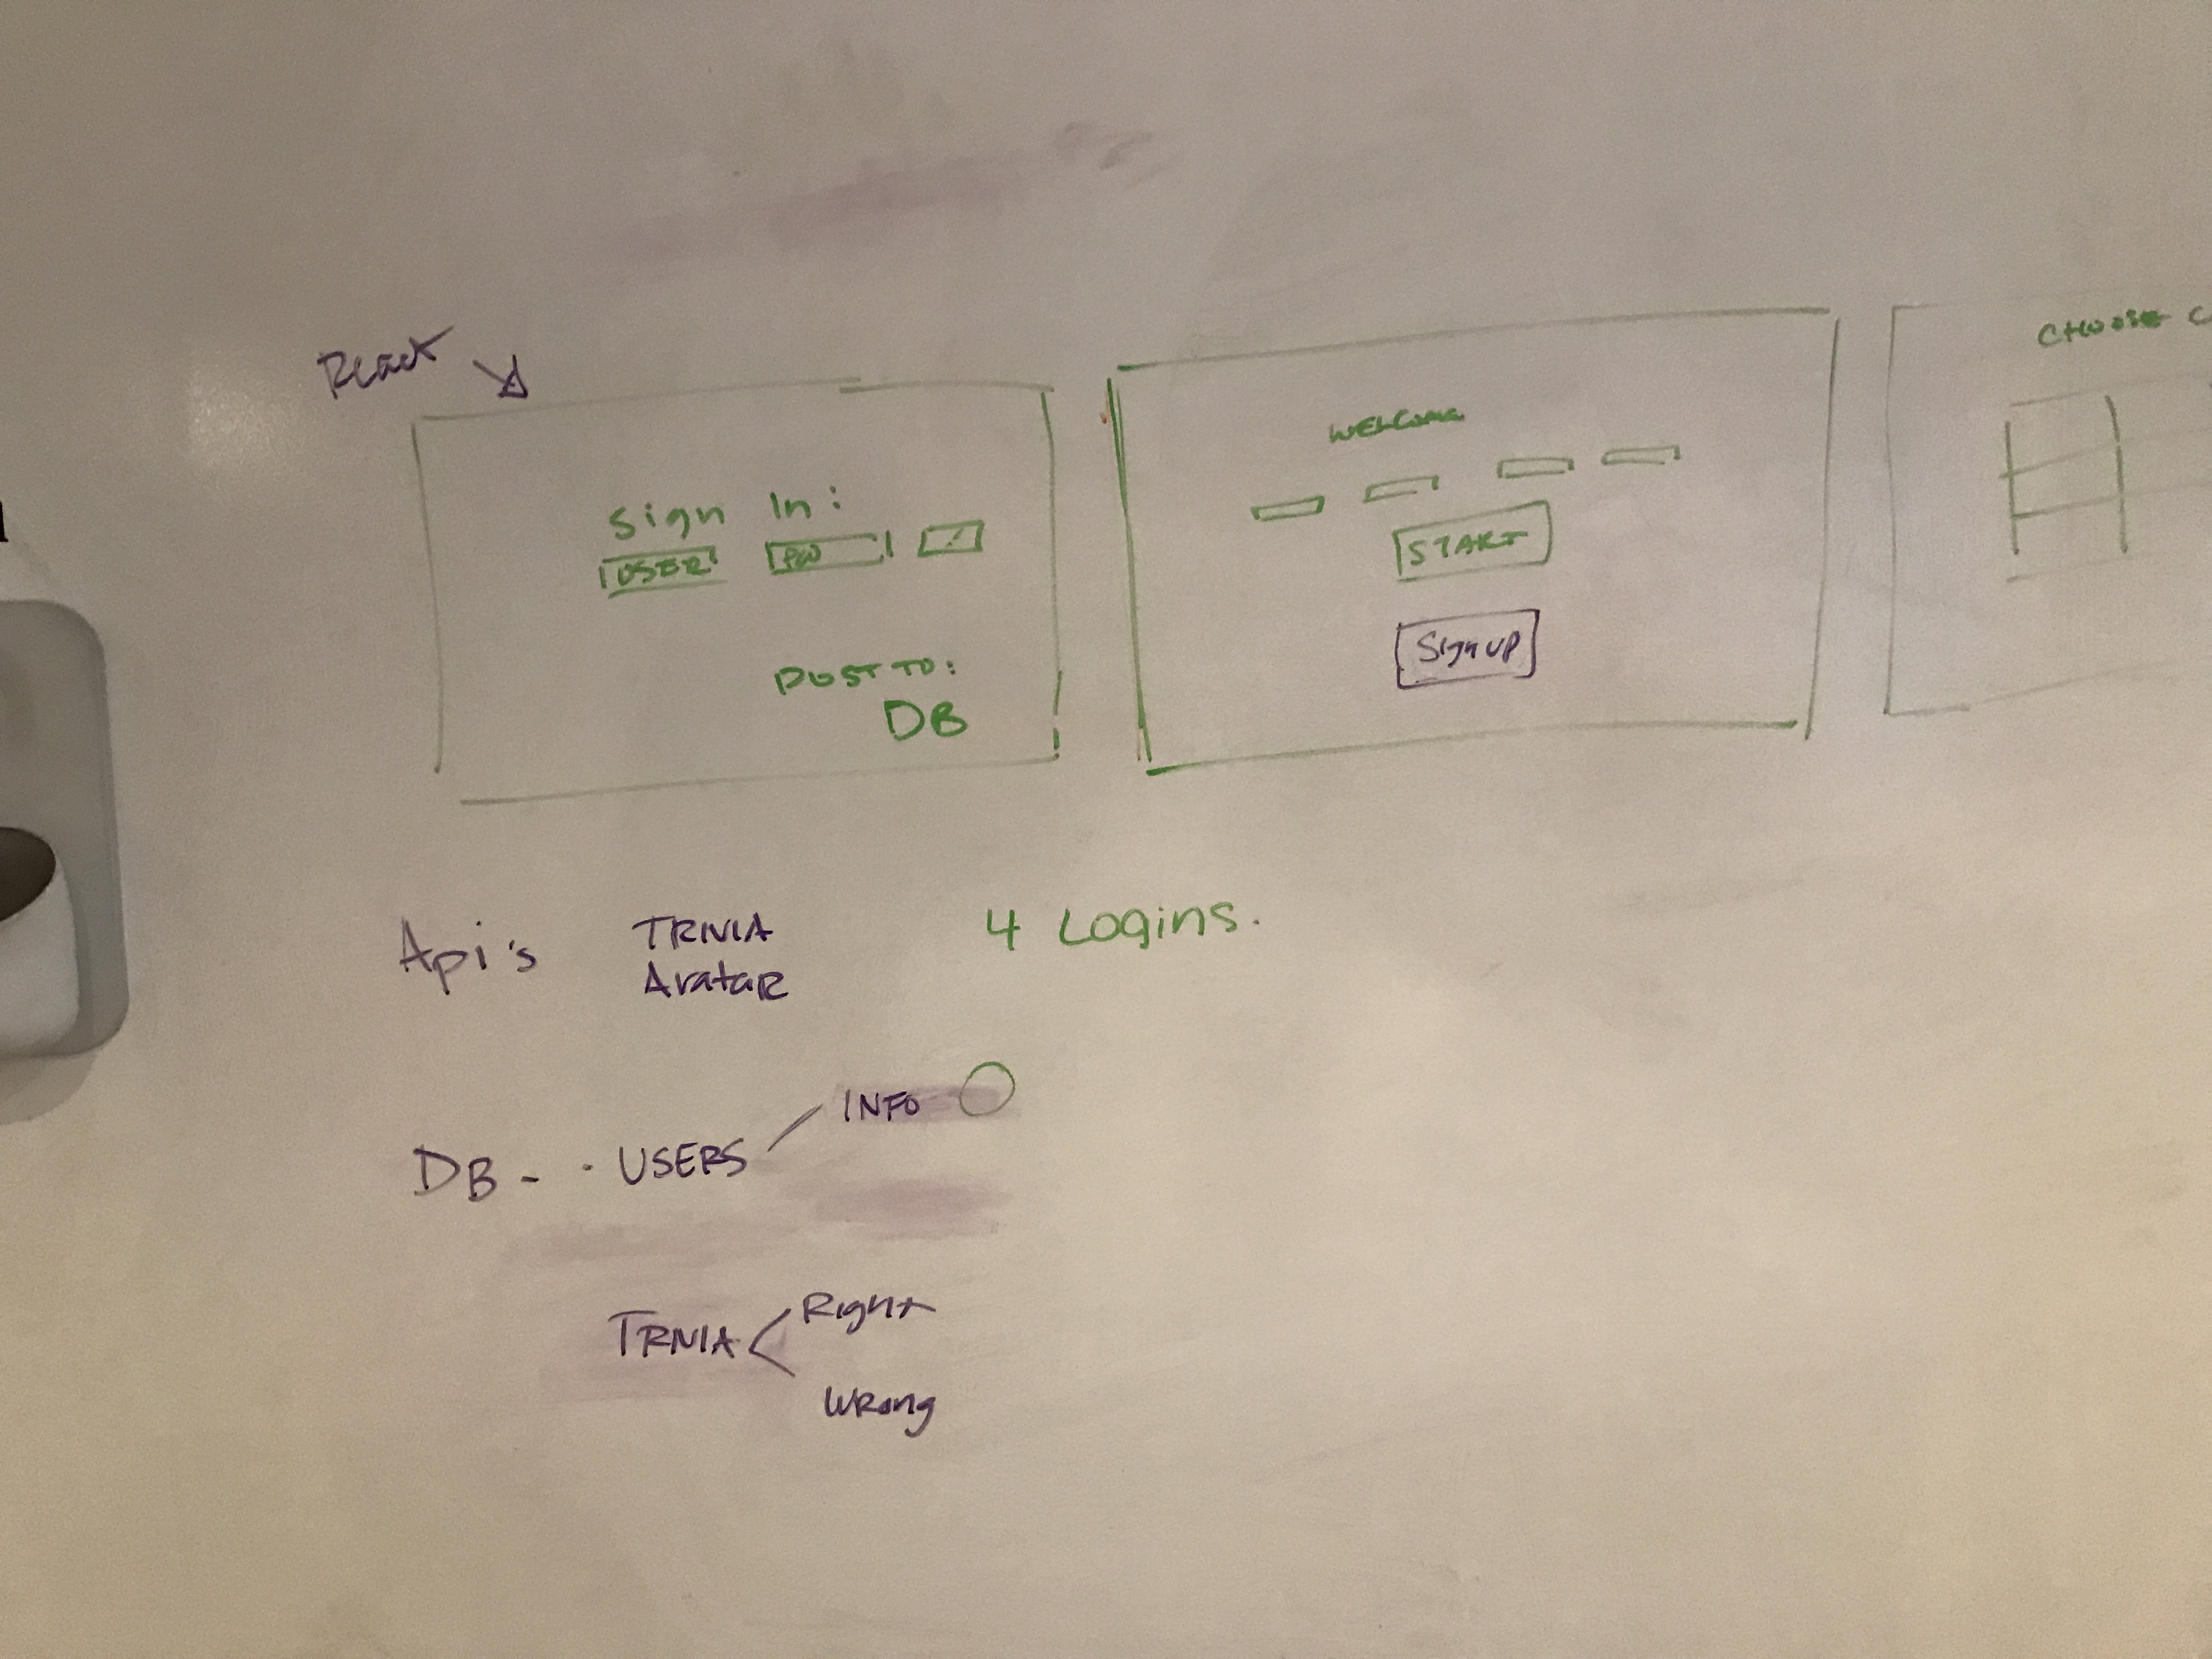 React
Sign In:
USER PW
POST TO:
DB
WELCOME
START
Sign up
CHOOSE C
Api's TRIVIA
Avatar
4 Logins.
DB - · USERS INFO
TRIVIA Right
Wrong